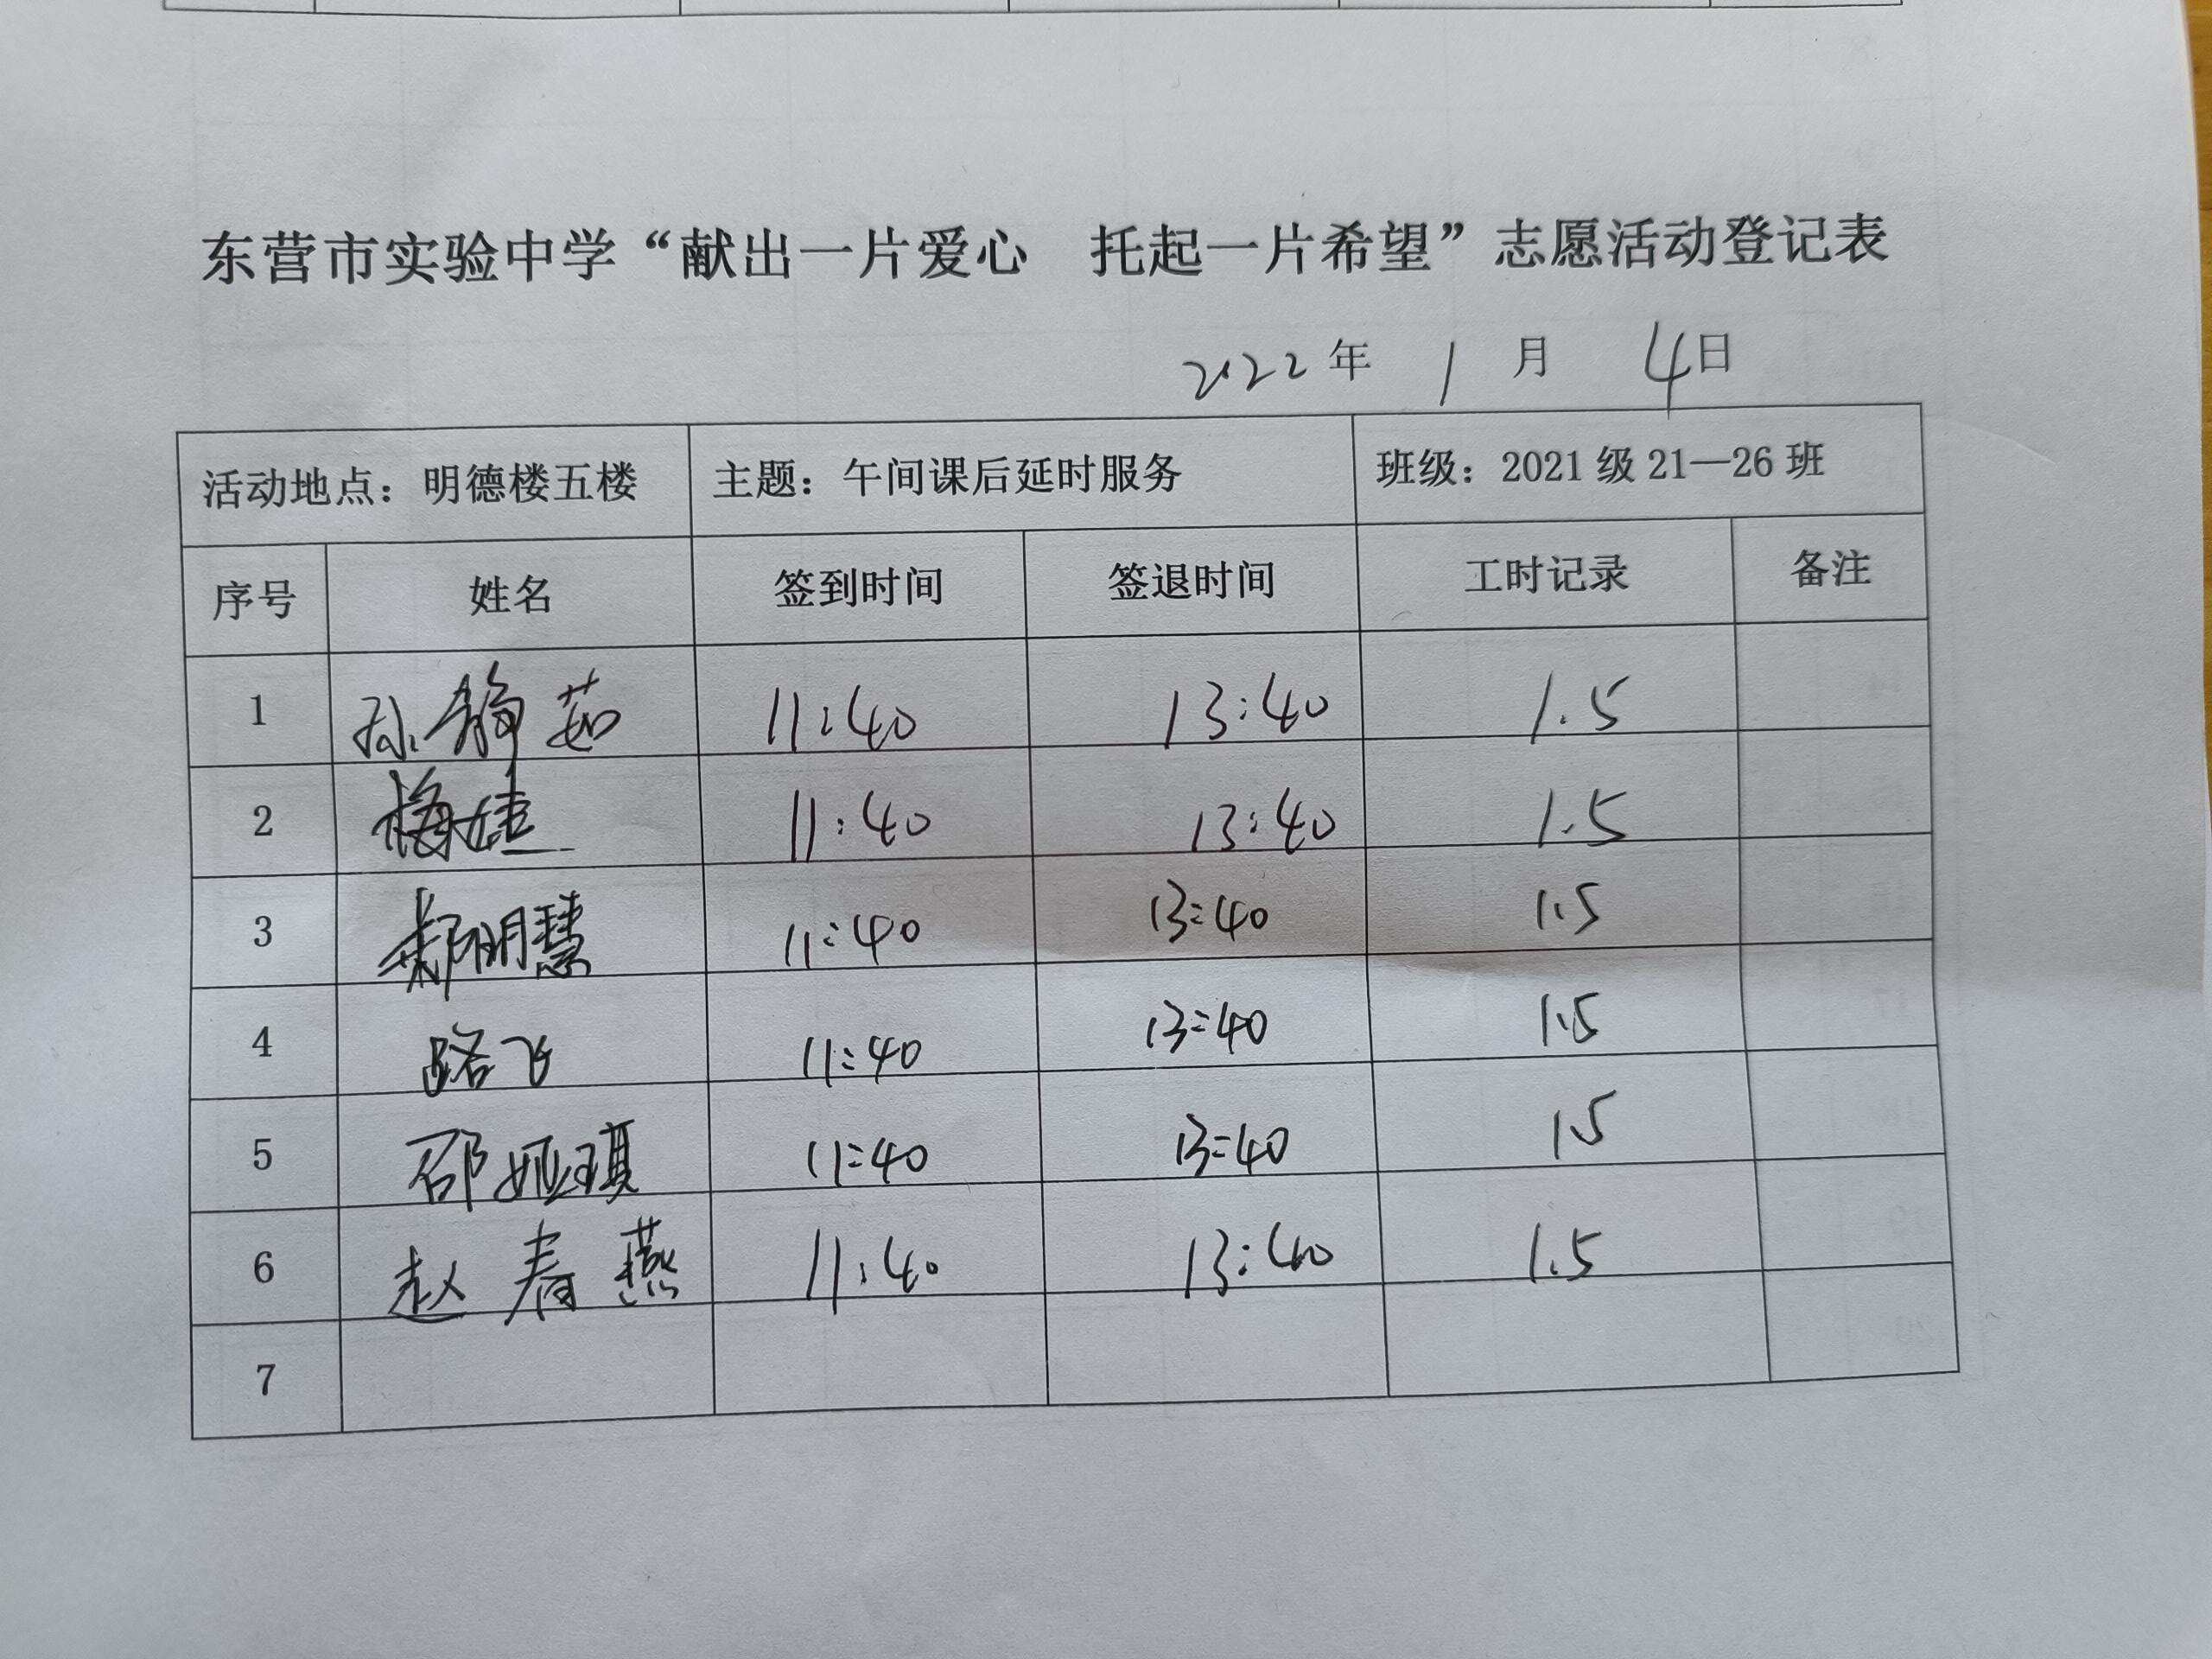 东营市实验中学“献出一片爱心　托起一片希望”志愿活动登记表
2022 年 1 月 4日
活动地点：明德楼五楼 主题：午间课后延时服务 班级：2021 级 21—26 班
序号 姓名 签到时间 签退时间 工时记录 备注
1 孙静茹 11:40 13:40 1.5
2 梅娃 11:40 13:40 1.5
3 郑明慧 11:40 13:40 1.5
4 路飞 11:40 13:40 1.5
5 邵娅琪 11:40 13:40 1.5
6 赵春燕 11:40 13:40 1.5
7